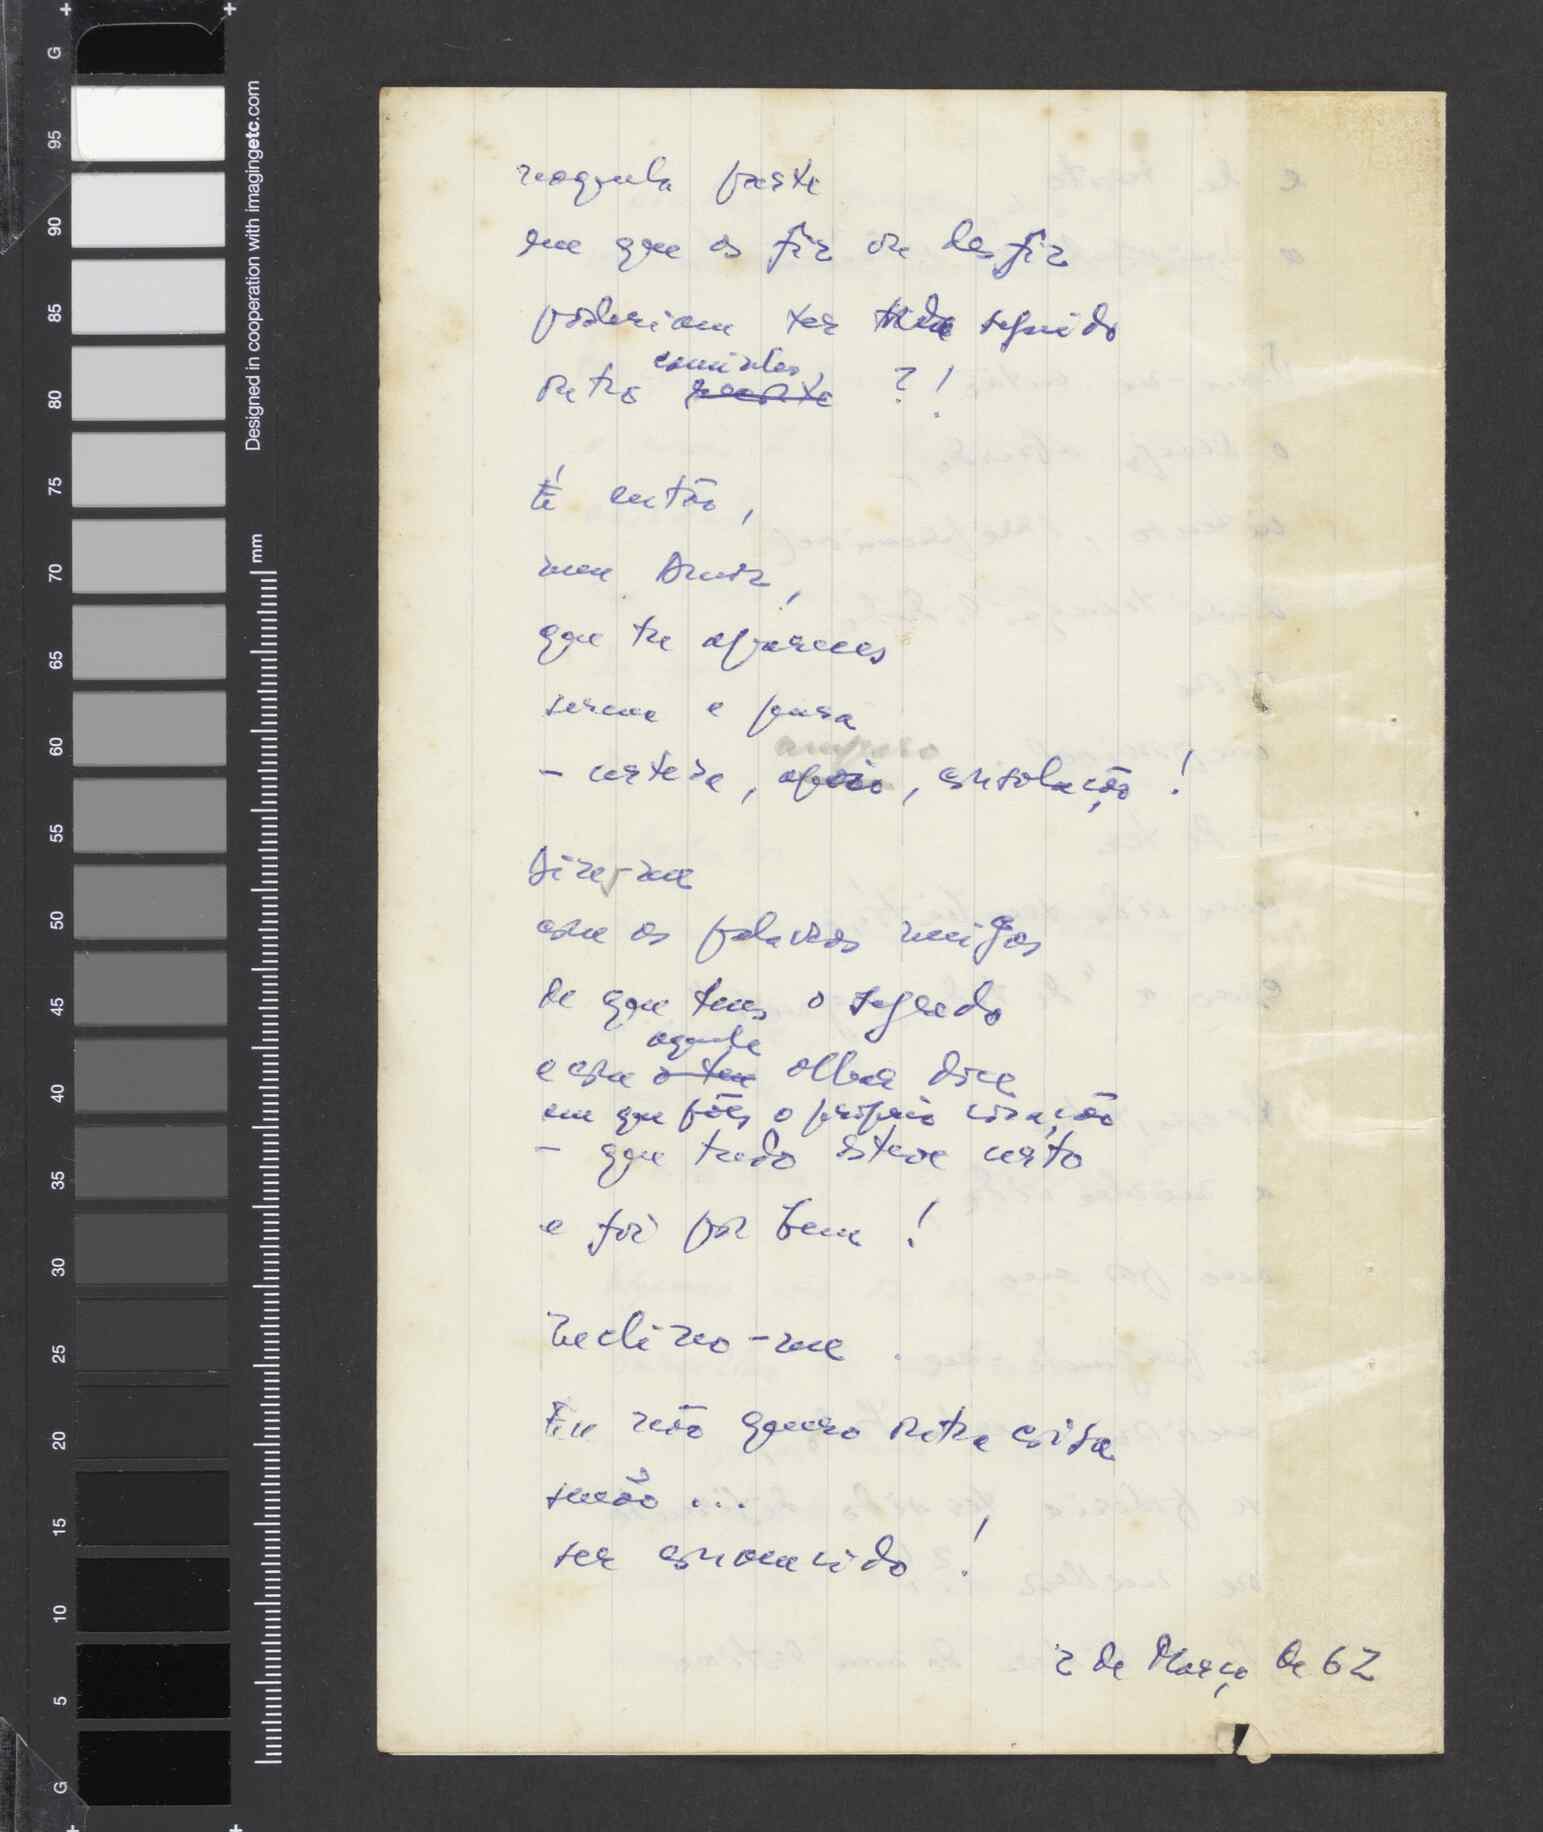 G
95
90
85
80
75
70
65
60
55
50
45
40
35
30
25
20
15
10
5
G
Designed in cooperation with imagingetc.com
mm
naquela parte
em que os fiz ou desfiz
poderiam ter tido seguido
caminho,
outro ?!
É então,
meu Amor,
que tu apareces
serena e pura
amparo
– certeza, apoio, consolação !
Dizes-me
com as palavras meigas
de que tens o segredo
aquele
e com o teu olhar doce
em que pões o próprio coração
– que tudo esteve certo
e foi por bem !
Reclino-me .
Eu não quero outra coisa
senão ...
ser convencido !
2 de Março de 62